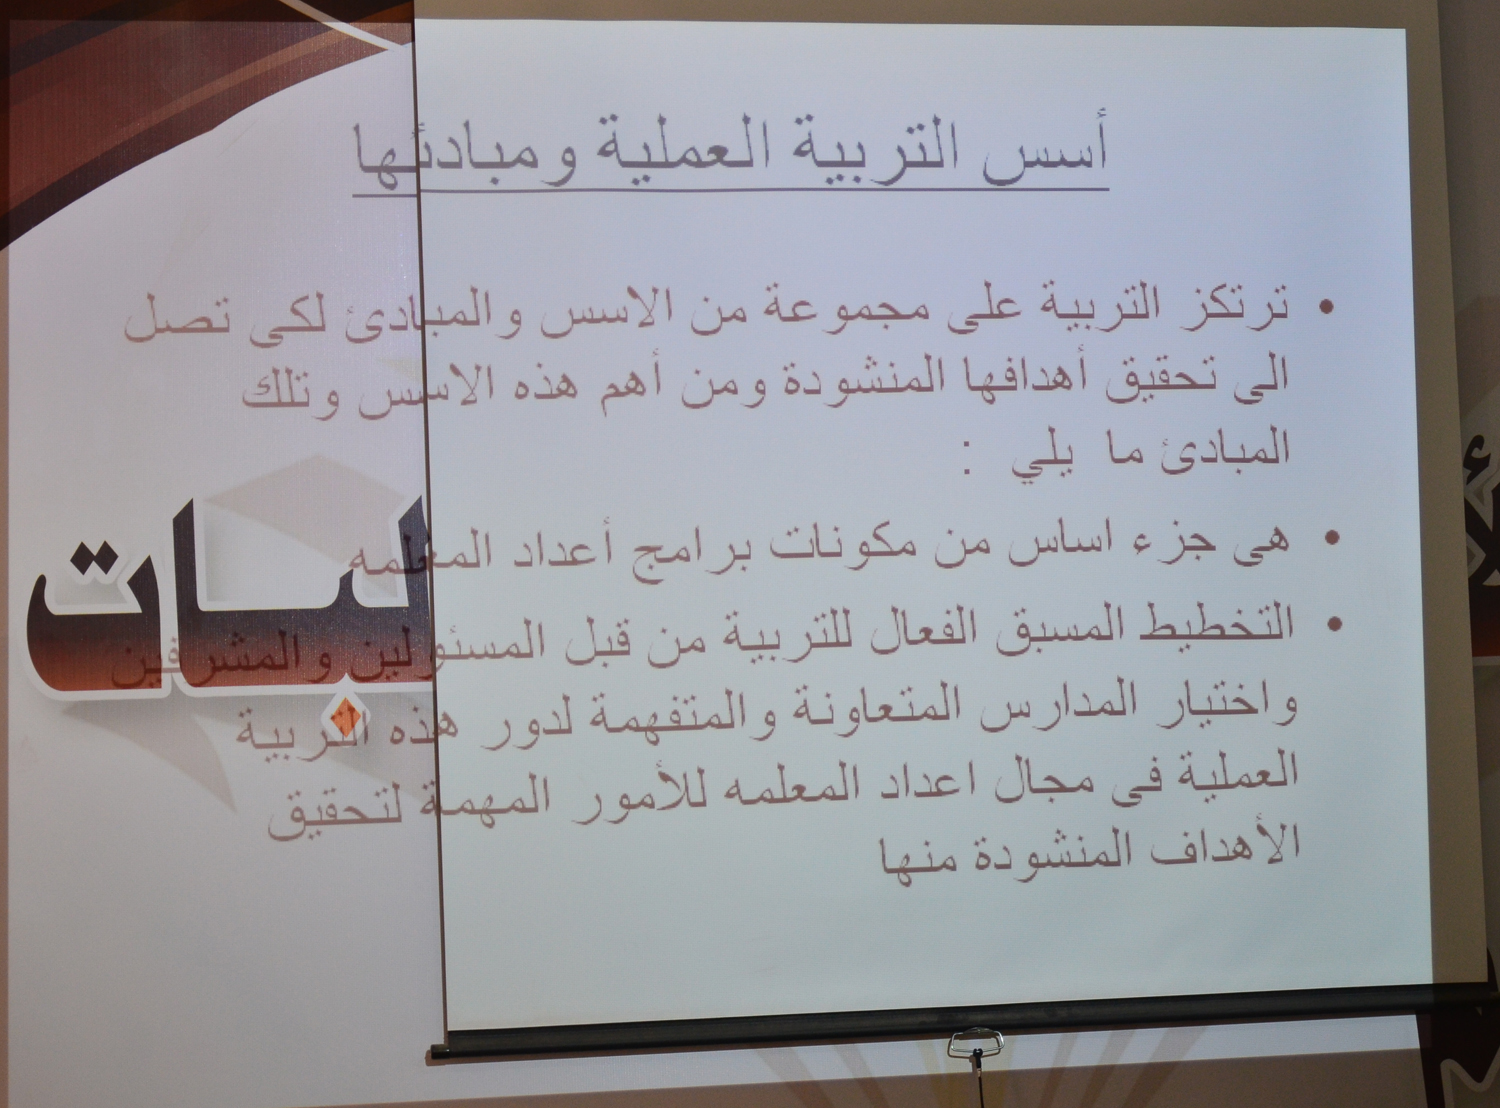 أسس التربية العملية ومبادئها
• ترتكز التربية على مجموعة من الاسس والمبادئ لكى تصل
الى تحقيق أهدافها المنشودة ومن أهم هذه الاسس وتلك
المبادئ ما يلي :
• هى جزء اساس من مكونات برامج أعداد المعلمه
• التخطيط المسبق الفعال للتربية من قبل المسئولين والمشرفين
واختيار المدارس المتعاونة والمتفهمة لدور هذه التربية
العملية فى مجال اعداد المعلمه للأمور المهمة لتحقيق
الأهداف المنشودة منها